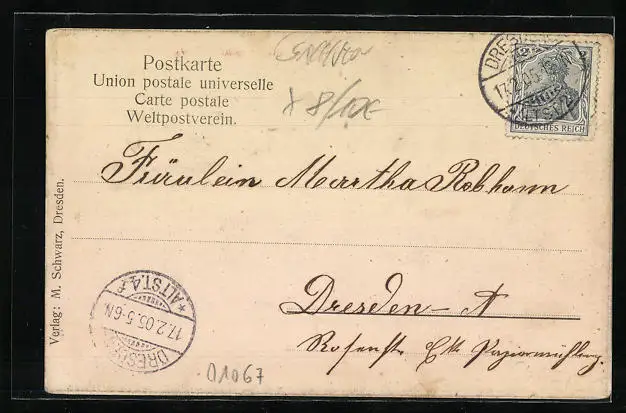 Postkarte
Union postale universelle
Carte postale
Weltpostverein.
x 8/10€
DRESDEN
17.2.05
ALTST.
2
2
DEUTSCHES REICH
Fräulein Martha Robhann
Dresden-A
Rosenstr. Papiermühleng.
Verlag: M. Schwarz, Dresden.
DRESDEN
17.2.05.5-6N
* ALTST.4.
01067